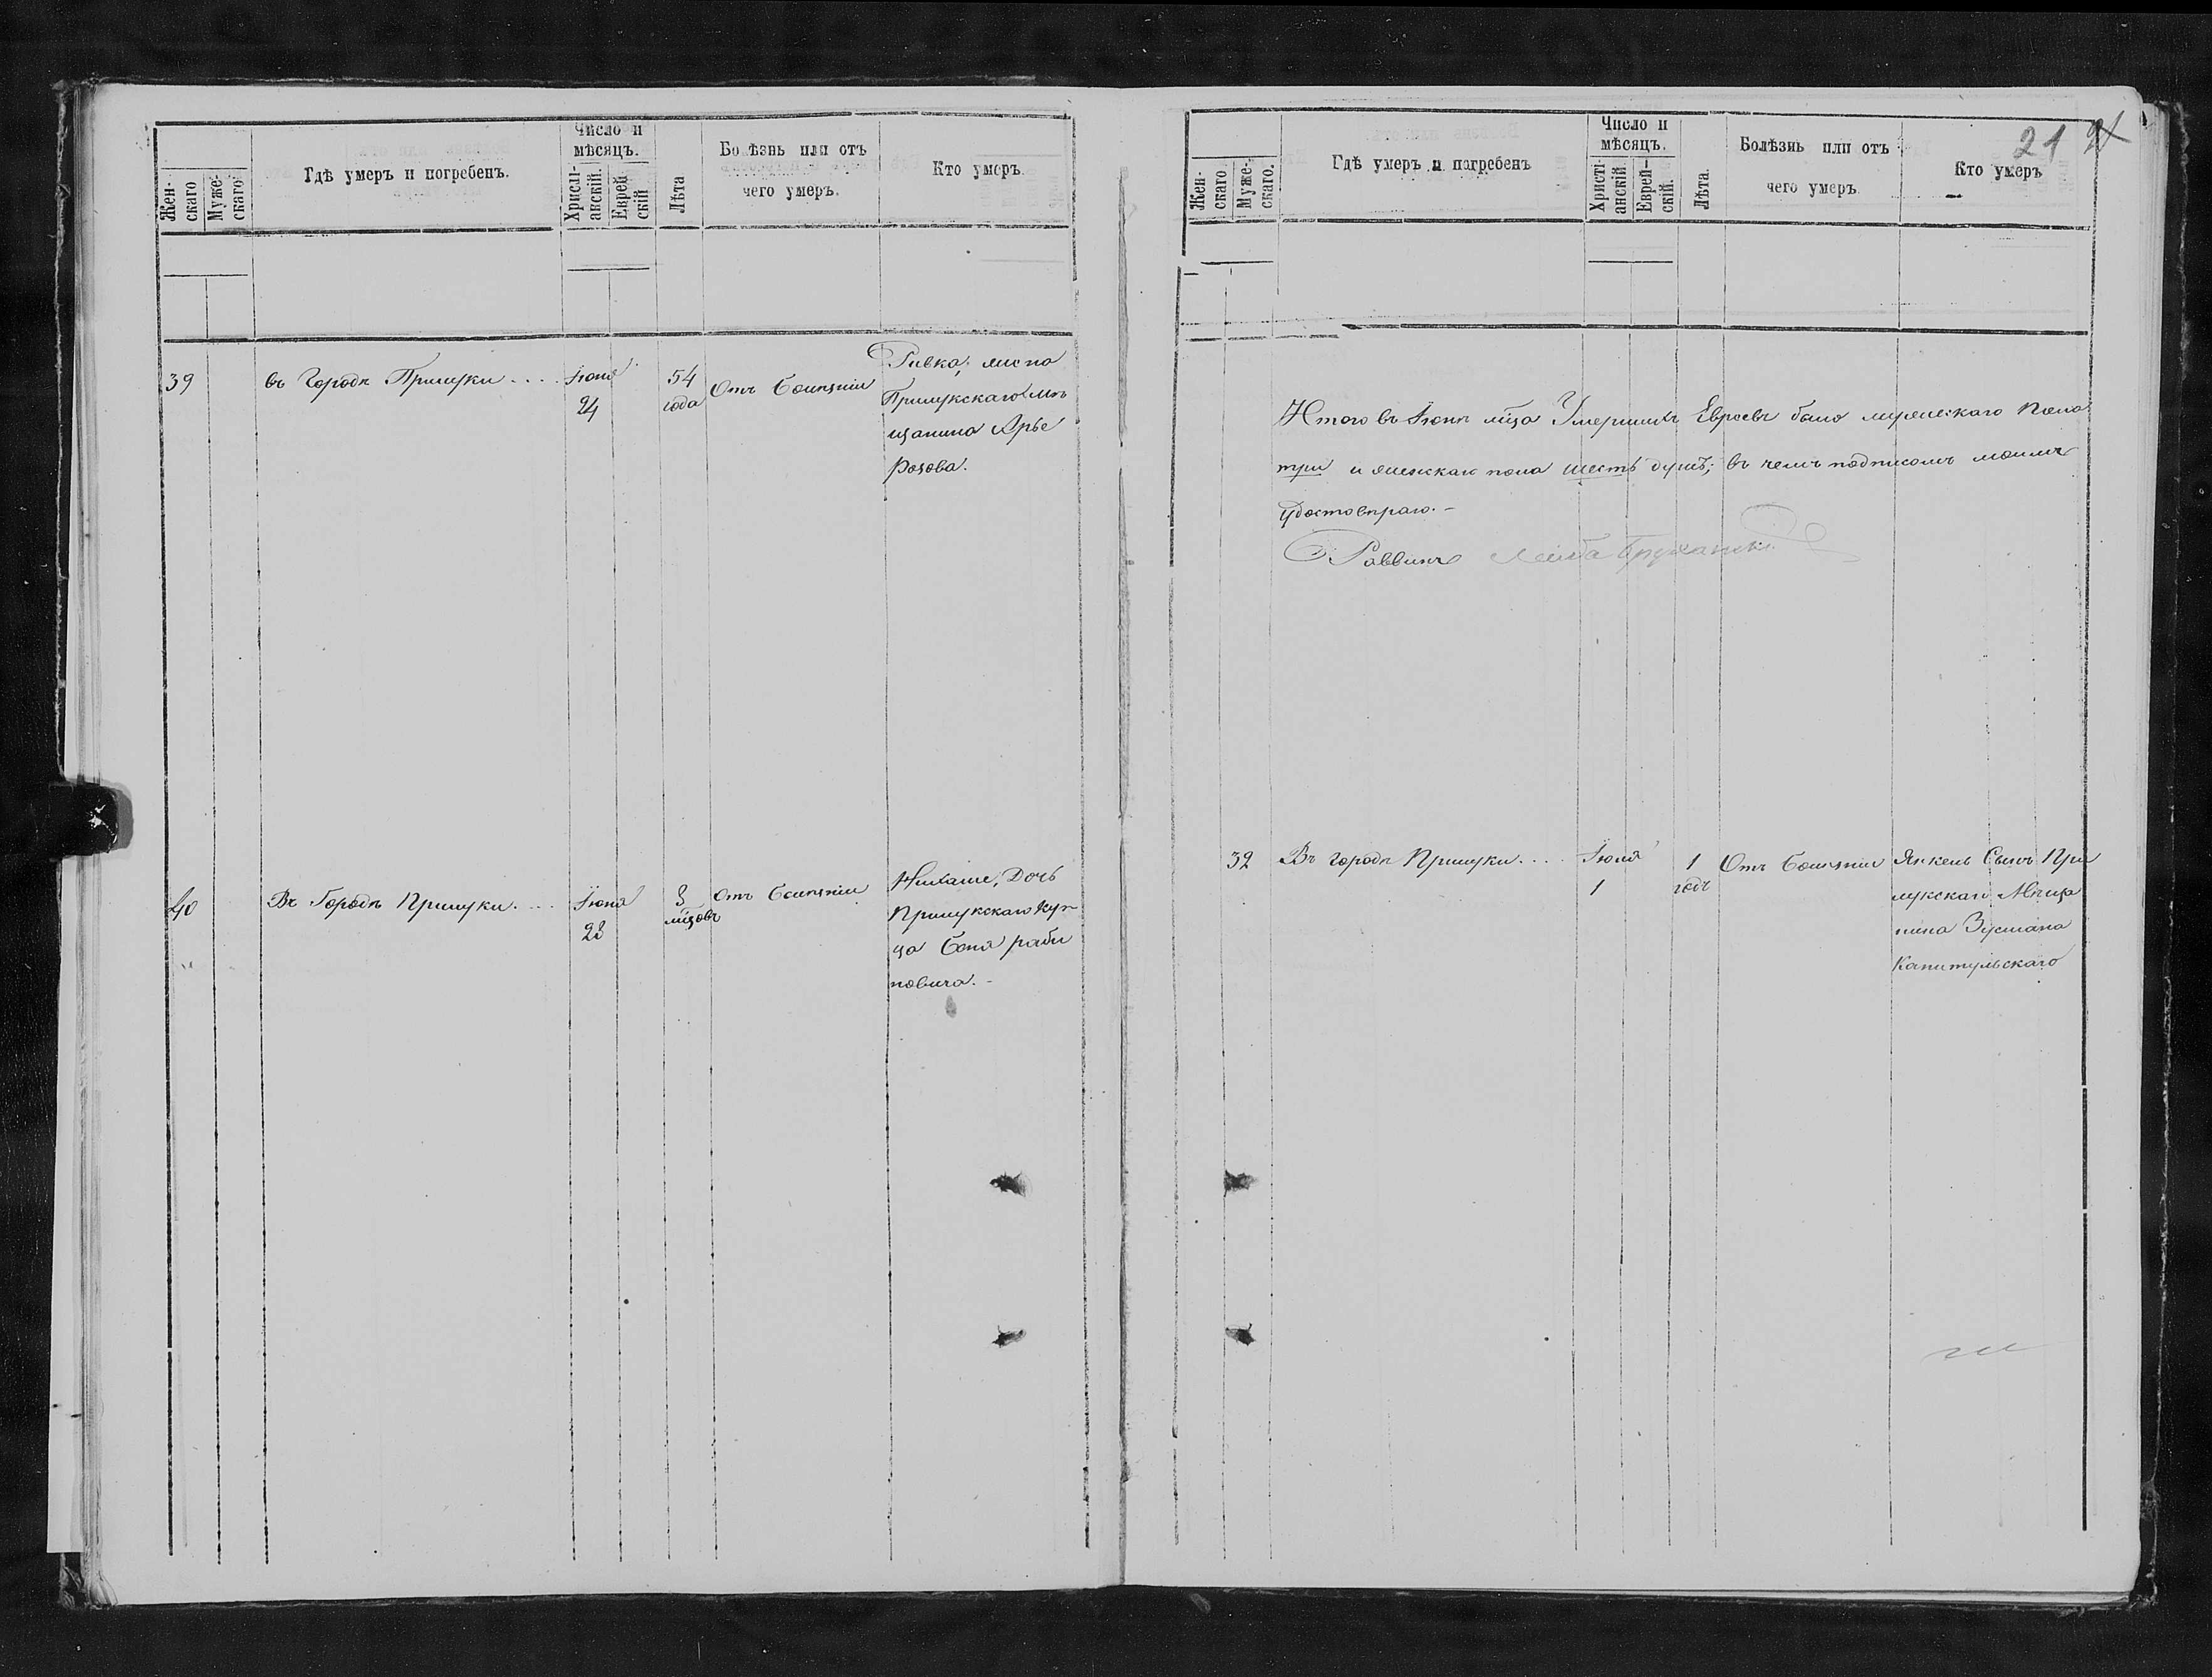 Жен-
скаго
Муже-
скаго
Гдѣ умеръ и погребенъ.
Число и
мѣсяцъ.
Христі-
анскій.
Еврей-
скій
Лѣта
Болѣзнь или отъ
чего умеръ.
Кто умеръ.
39
въ Городѣ Прилуки....
Іюня
24
54
года
Отъ болѣзни
Ривка, жена
Прилукскаго мѣ
щанина Арье
Розова.
40
Въ Городѣ Прилуки....
Іюня
28
3
мѣсцовъ
Отъ болѣзни
Дочь
Прилукскаго Куп
ца Беня раби
новича.-
21
Жен-
скаго
Муже-
скаго.
Гдѣ умеръ и погребенъ
Число и
мѣсяцъ.
Христі-
анскій
Еврей-
скій.
Лѣта.
Болѣзнь или отъ
чего умеръ.
Кто умеръ
Итого въ Іюнѣ мѣца Умершихъ Евреевъ было мужескаго пола
три и женскаго пола шесть душъ; въ чемъ подписомъ моимъ
удостовѣраю.-
Раввинъ Лейба
32
Въ городѣ Прилуки....
Іюля
1
1
годъ
Отъ болѣзни
Янкель Сынъ При
лукскаго Мѣща
нина Зусмана
Капитульскаго